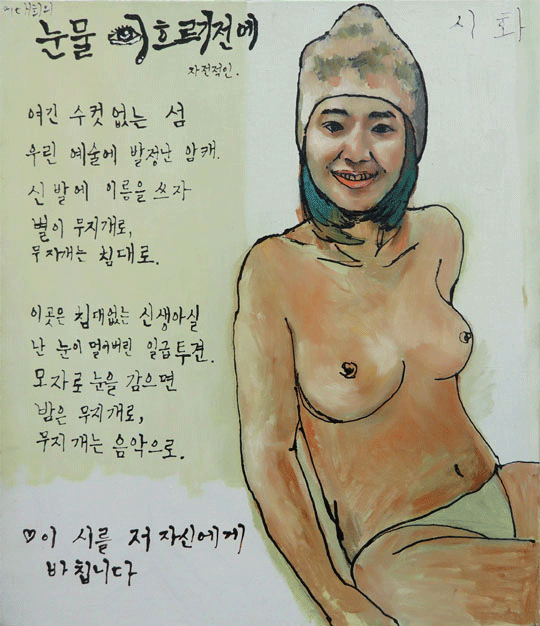 눈물이 흐르기전에
자전적인.
시 화
여긴 수컷 없는 섬
우린 예술에 발정난 암캐.
신발에 이름을 쓰자
별이 무지개로,
무지개는 침대로.
이곳은 침대없는 신생아실
난 눈이 멀어버린 일급투견.
모자로 눈을 감으면
밤은 무지개로,
무지개는 음악으로.
♡이 시를 저 자신에게
바칩니다